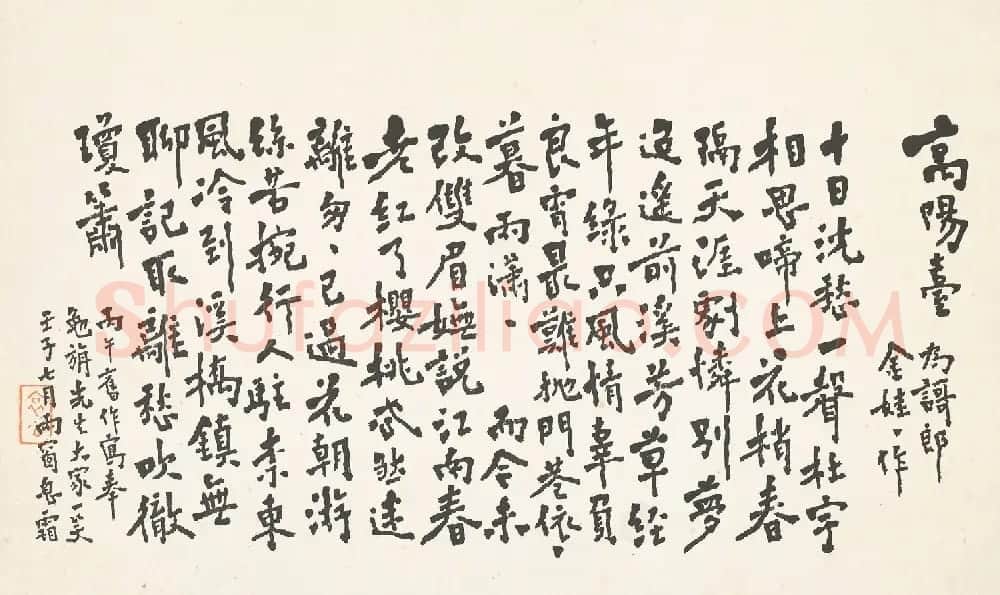 高陽臺 為謌郎
金娃〻作
十日沈愁一聲杜宇
相思啼上花梢春
隔天涯劇憐別夢
迢遙前溪芳草經
年綠只風情辜負
良宵最難抛門巷依〻
暮雨瀟〻 而今未
改雙眉嫵說江南春
老紅了櫻桃忒煞迷
離匆〻已過花朝游
絲苦挽行人駐柰東
風冷到溪橋鎮無
聊記取離愁吹徹
瓊簫
丙午舊作寫奉
勉旃先生大家一笑
壬子七月雨窗息霜
Shufaziliao.COM